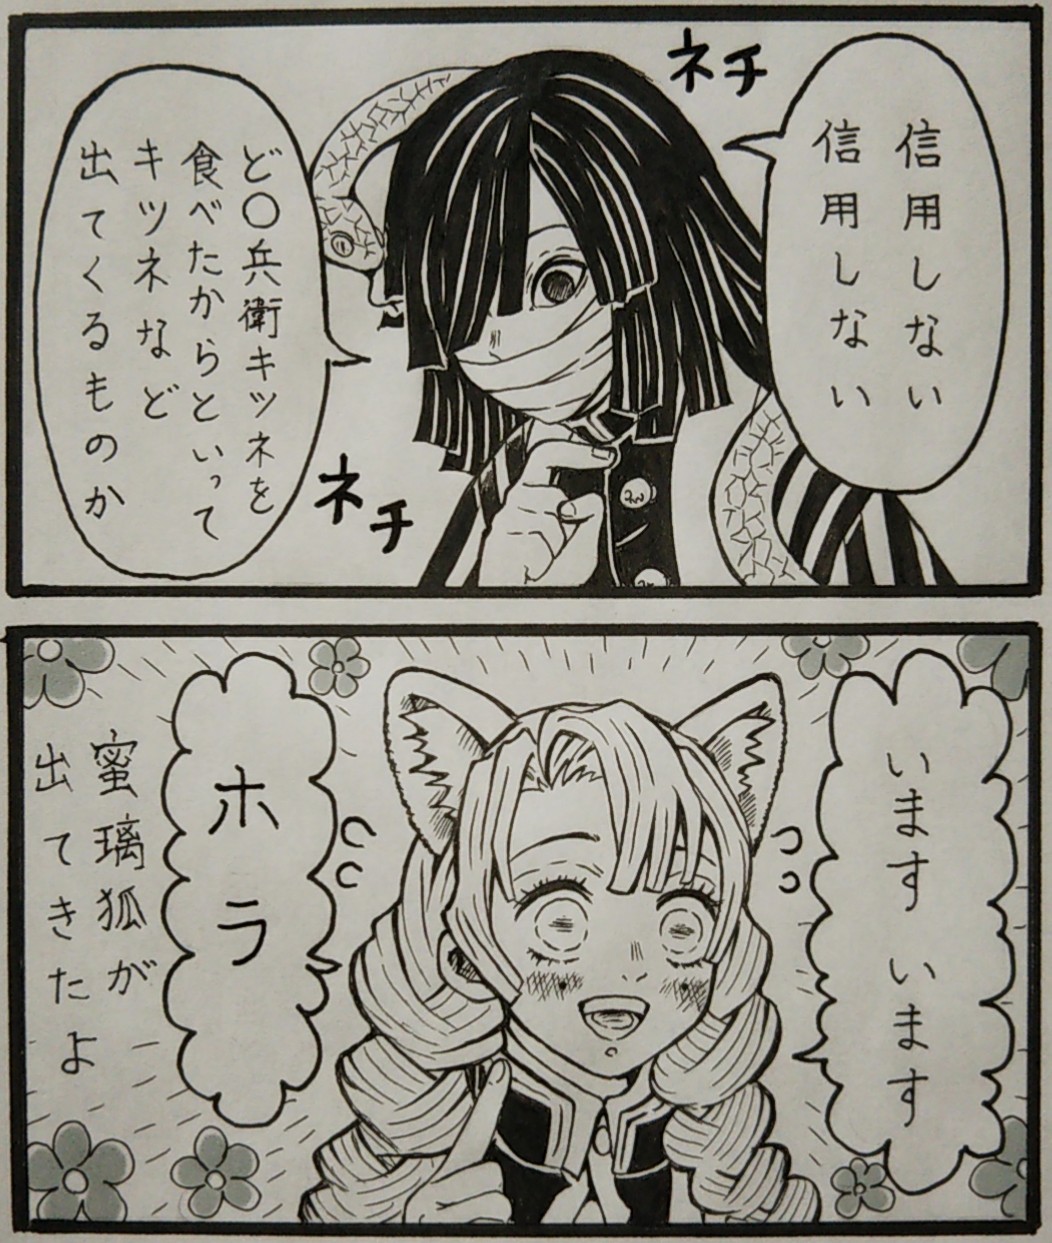 信用しない
信用しない
ネチ
ど〇兵衛キツネを
食べたからといって
キツネなど
出てくるものか
ネチ
います います
ホラ
蜜璃狐が
出てきたよ